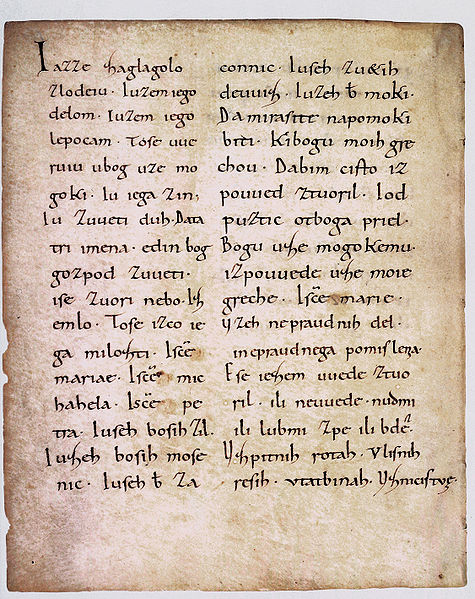 Iazze zaglagolo
zlodeiu. Iuzem iego
delom. Iuzem iego
lepocam. Tose uue
ruiu ubog uze mo
goki. Iu iega zin;
Iu zuueti duh. Data
tri imena. edin bog
gozpod zuueti.
ise zuori nebo. Iz
emlo. Tose izco ie
ga milozti. I scẽ
mariae. I scẽ mic
hahela. I scẽ pe
tra. Iuseh bosih zil.
Iuzeh bosih mose
nic. Iuseh b̄ za
connic. Iuseh zu&ih
deuuiz. Iuzeh b̄ moki.
Da mirastete napomoki
biti. Kibogu moih gre
chou. Dabim cisto iz
pouued ztuoril. Iod
puztic otboga priel.
Bogu uze mogokemu.
izpouuede uze moie
greche. I scẽ marie.
Uzeh nepraudnih del.
inepraudnega pomislena.
Ese iezem uuede ztuo
ril. ili neuuede. nudmi
ili lubmi zpe ili bdẽ.
Uzpitnih rotah. Vlisnih
resih. vtatbinah. Uznicistuę.